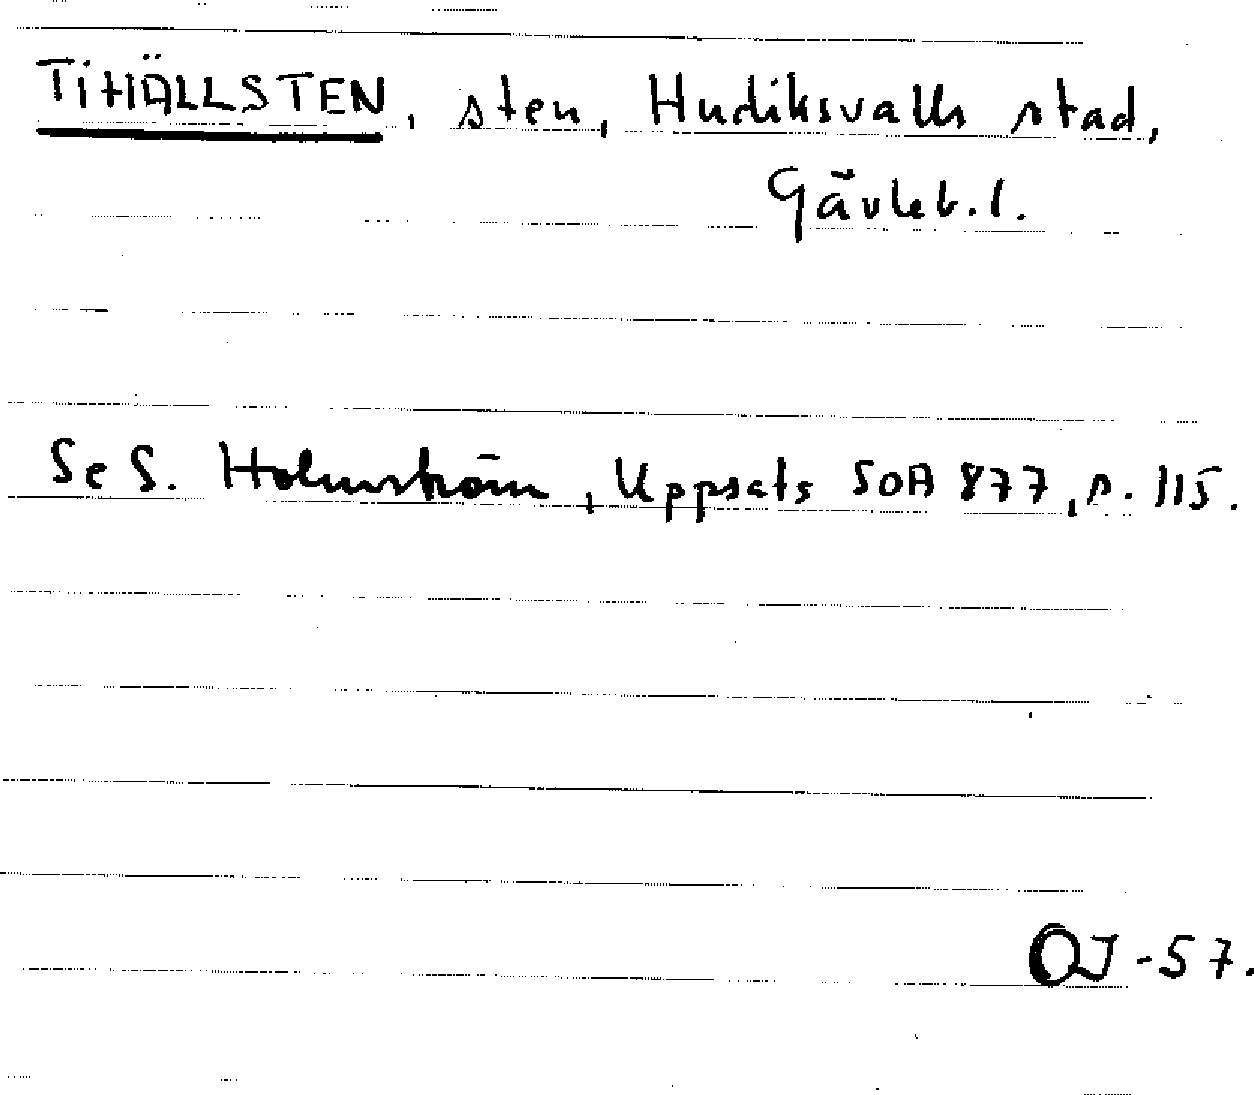 TIHÄLLSTEN, sten, Hudiksvalls stad,
Gävleb.l.
Se S. Holmström, Uppsats SOA 877, s. 115.
OJ -57.